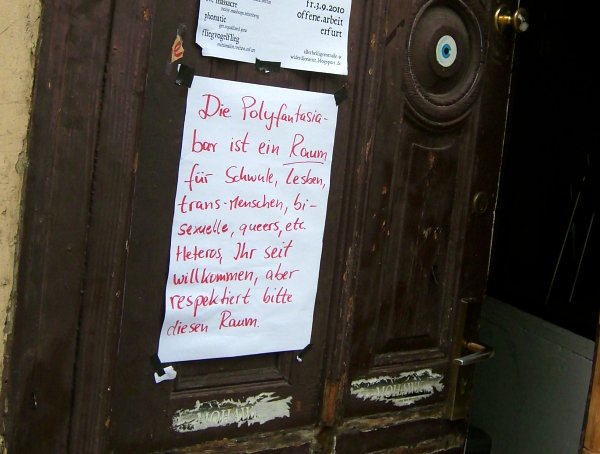 massacre
phonatic
fliegvogelflieg
fr.3.9.2010
offene.arbeit
erfurt
allerheiligenstraße 9
Die Polyfantasia-
bar ist ein Raum
für Schwule, Lesben,
trans-Menschen, bi-
sexuelle, queers, etc.
Heteros, Ihr seit
willkommen, aber
respektiert bitte
diesen Raum.